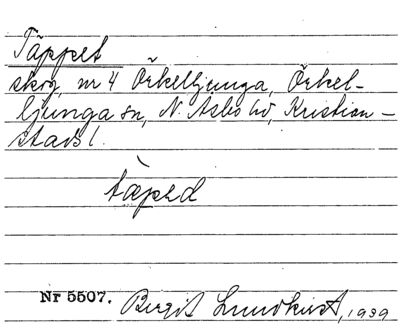 Täppet
skog, nr 4 Örkelljunga, Örkel-
ljunga sn, N. Åsbo hd, Kristian-
stads l.
tàpəd
Nr 5507. Birgit Lundkvist, 1939